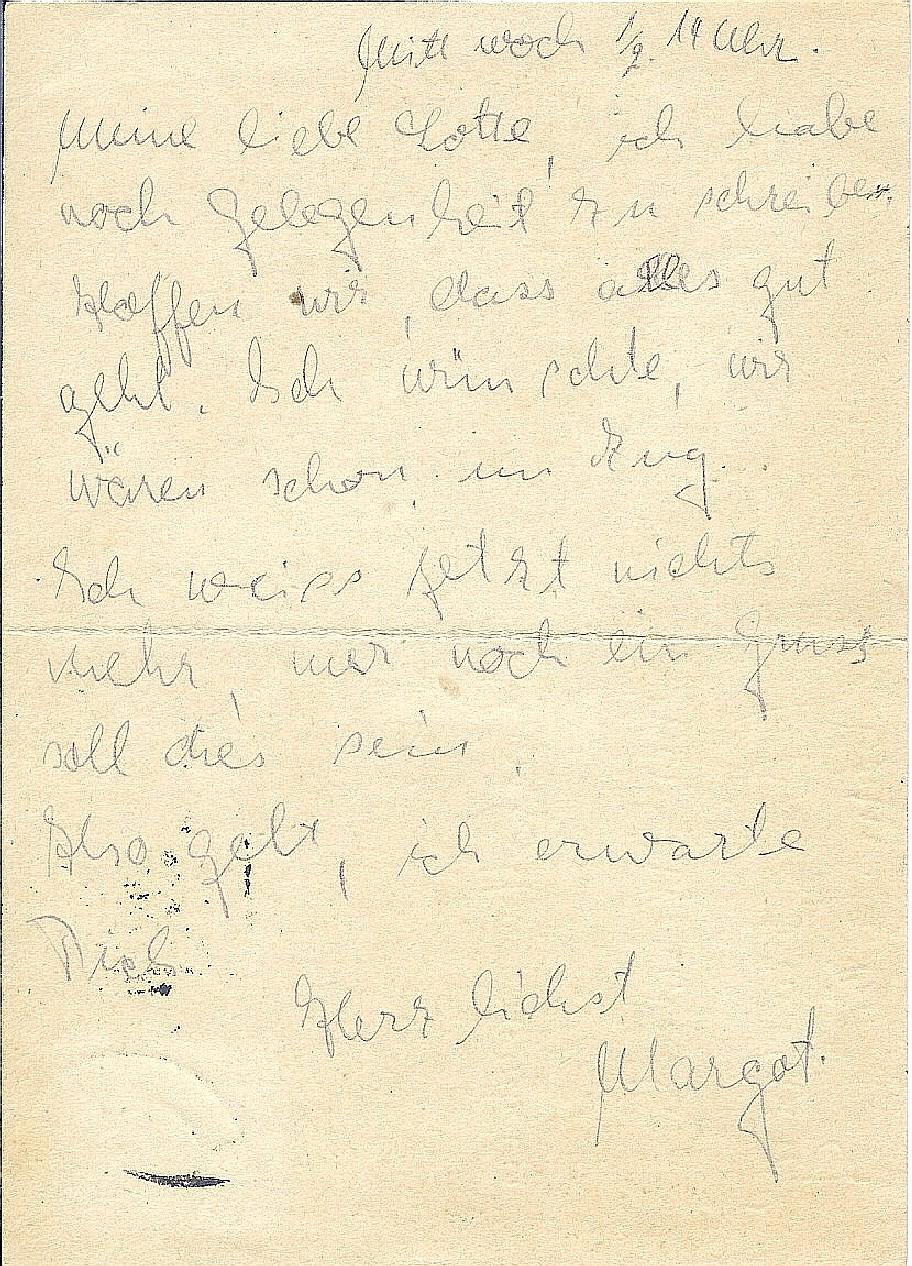 Mittwoch 1/2 14 Uhr.
Meine liebe Lotte, ich habe
noch Gelegenheit zu schreiben.
Hoffen wir, dass alles gut
geht. Ich wünschte, wir
wären schon im Zug.
Ich weiss jetzt nichts
mehr, nur noch ein Gruss
soll dies sein.
Also gebt, ich erwarte
Dich.
Herzlichst
Margot.